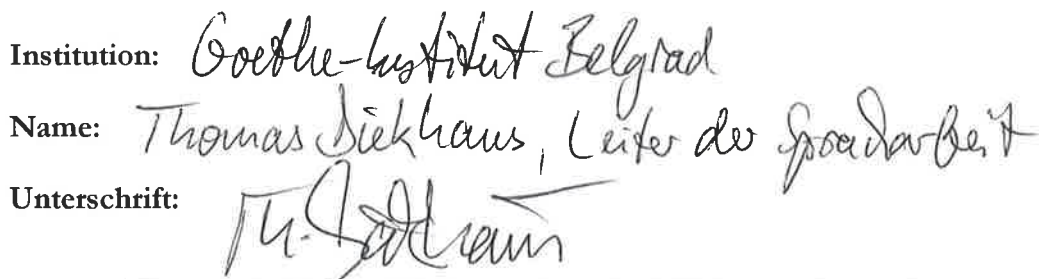 Institution: Goethe-Institut Belgrad
Name: Thomas Diekhaus, Leiter der Spracharbeit
Unterschrift: Th. Diekhaus